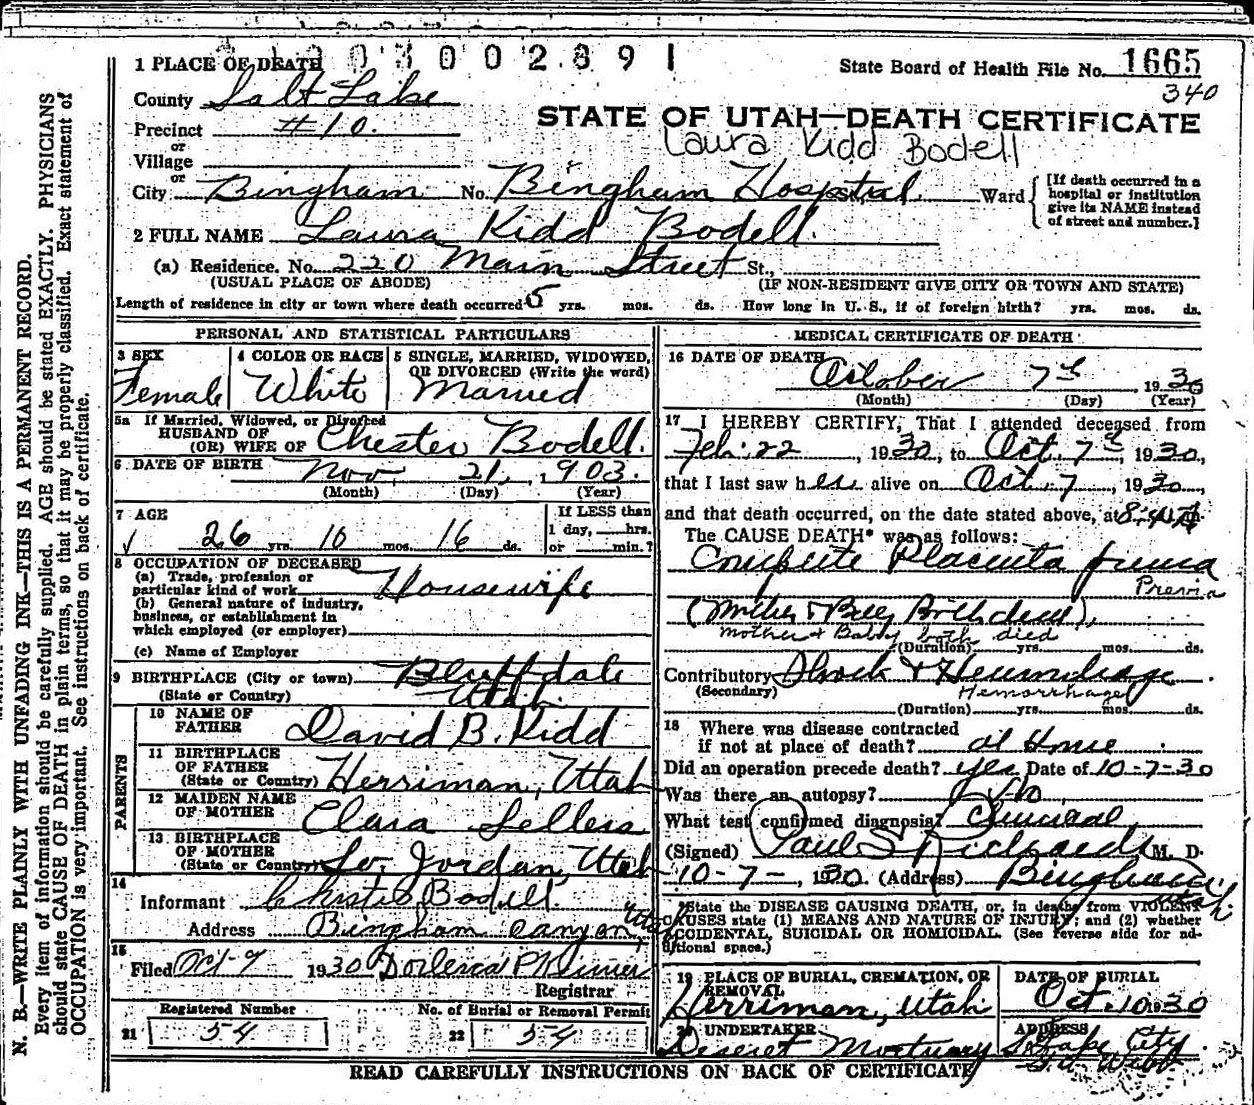 1 0 3 0 0 2 8 9 1
1 PLACE OF DEATH
State Board of Health File No. 1665
340
County Salt Lake
STATE OF UTAH—DEATH CERTIFICATE
Precinct #10.
or
Village
Laura Kidd Bodell
or
City Bingham No. Bingham Hospital St., Ward
[If death occurred in a hospital or institution give its NAME instead of street and number.]
2 FULL NAME Laura Kidd Bodell.
(a) Residence. No. 220 Main Street St.,
(USUAL PLACE OF ABODE) (IF NON-RESIDENT GIVE CITY OR TOWN AND STATE)
Length of residence in city or town where death occurred 5 yrs. mos. ds. How long in U. S., if of foreign birth? yrs. mos. ds.
PERSONAL AND STATISTICAL PARTICULARS
3 SEX Female
4 COLOR OR RACE White
5 SINGLE, MARRIED, WIDOWED, OR DIVORCED (Write the word) Married
5a If Married, Widowed, or Divorced
HUSBAND OF
(OR) WIFE OF Chester Bodell.
6 DATE OF BIRTH Nov. 21, 1903.
(Month) (Day) (Year)
7 AGE
26 yrs. 10 mos. 16 ds.
If LESS than
1 day, hrs.
or min.?
8 OCCUPATION OF DECEASED
(a) Trade, profession or
particular kind of work Housewife
(b) General nature of industry,
business, or establishment in
which employed (or employer)
(c) Name of Employer
9 BIRTHPLACE (City or town) Bluffdale
(State or Country) Utah.
PARENTS
10 NAME OF
FATHER David B. Kidd
11 BIRTHPLACE
OF FATHER
(State or Country) Herriman, Utah
12 MAIDEN NAME
OF MOTHER Clara Sellers
13 BIRTHPLACE
OF MOTHER
(State or Country) So. Jordan, Utah
14
Informant Bodell.
Address Bingham Canyon, Utah
15
Filed Oct 7 1930
Registrar
Registered Number
21 54
No. of Burial or Removal Permit
22 54
MEDICAL CERTIFICATE OF DEATH
16 DATE OF DEATH
October 7th, 1930
(Month) (Day) (Year)
17 I HEREBY CERTIFY, That I attended deceased from
Feb. 22, 1930, to Oct 7th, 1930,
that I last saw her alive on Oct. 7, 1930,
and that death occurred, on the date stated above, at
The CAUSE DEATH* was as follows:
Complete Placenta previa
Previa
Mother + Baby both died
(Duration) yrs. mos. ds.
Contributory Shock & Hemorrhage
(Secondary) Hemorrhage
(Duration) yrs. mos. ds.
18 Where was disease contracted
if not at place of death? at Home
Did an operation precede death? yes Date of 10-7-30
Was there an autopsy? No
What test confirmed diagnosis? Clinical
(Signed) Paul S Richards M. D.
10-7-, 1930. (Address) Bingham Utah
*State the DISEASE CAUSING DEATH, or, in deaths from VIOLENT
CAUSES state (1) MEANS AND NATURE OF INJURY; and (2) whether
ACCIDENTAL, SUICIDAL OR HOMICIDAL. (See reverse side for ad-
ditional space.)
19 PLACE OF BURIAL, CREMATION, OR
REMOVAL
Herriman, Utah
DATE OF BURIAL
Oct. 10 1930
20 UNDERTAKER
Deseret Mortuary
ADDRESS
S. Lake City
READ CAREFULLY INSTRUCTIONS ON BACK OF CERTIFICATE
N. B.—WRITE PLAINLY WITH UNFADING INK—THIS IS A PERMANENT RECORD.
Every item of information should be carefully supplied. AGE should be stated EXACTLY. PHYSICIANS
should state CAUSE OF DEATH in plain terms, so that it may be properly classified. Exact statement of
OCCUPATION is very important. See instructions on back of certificate.